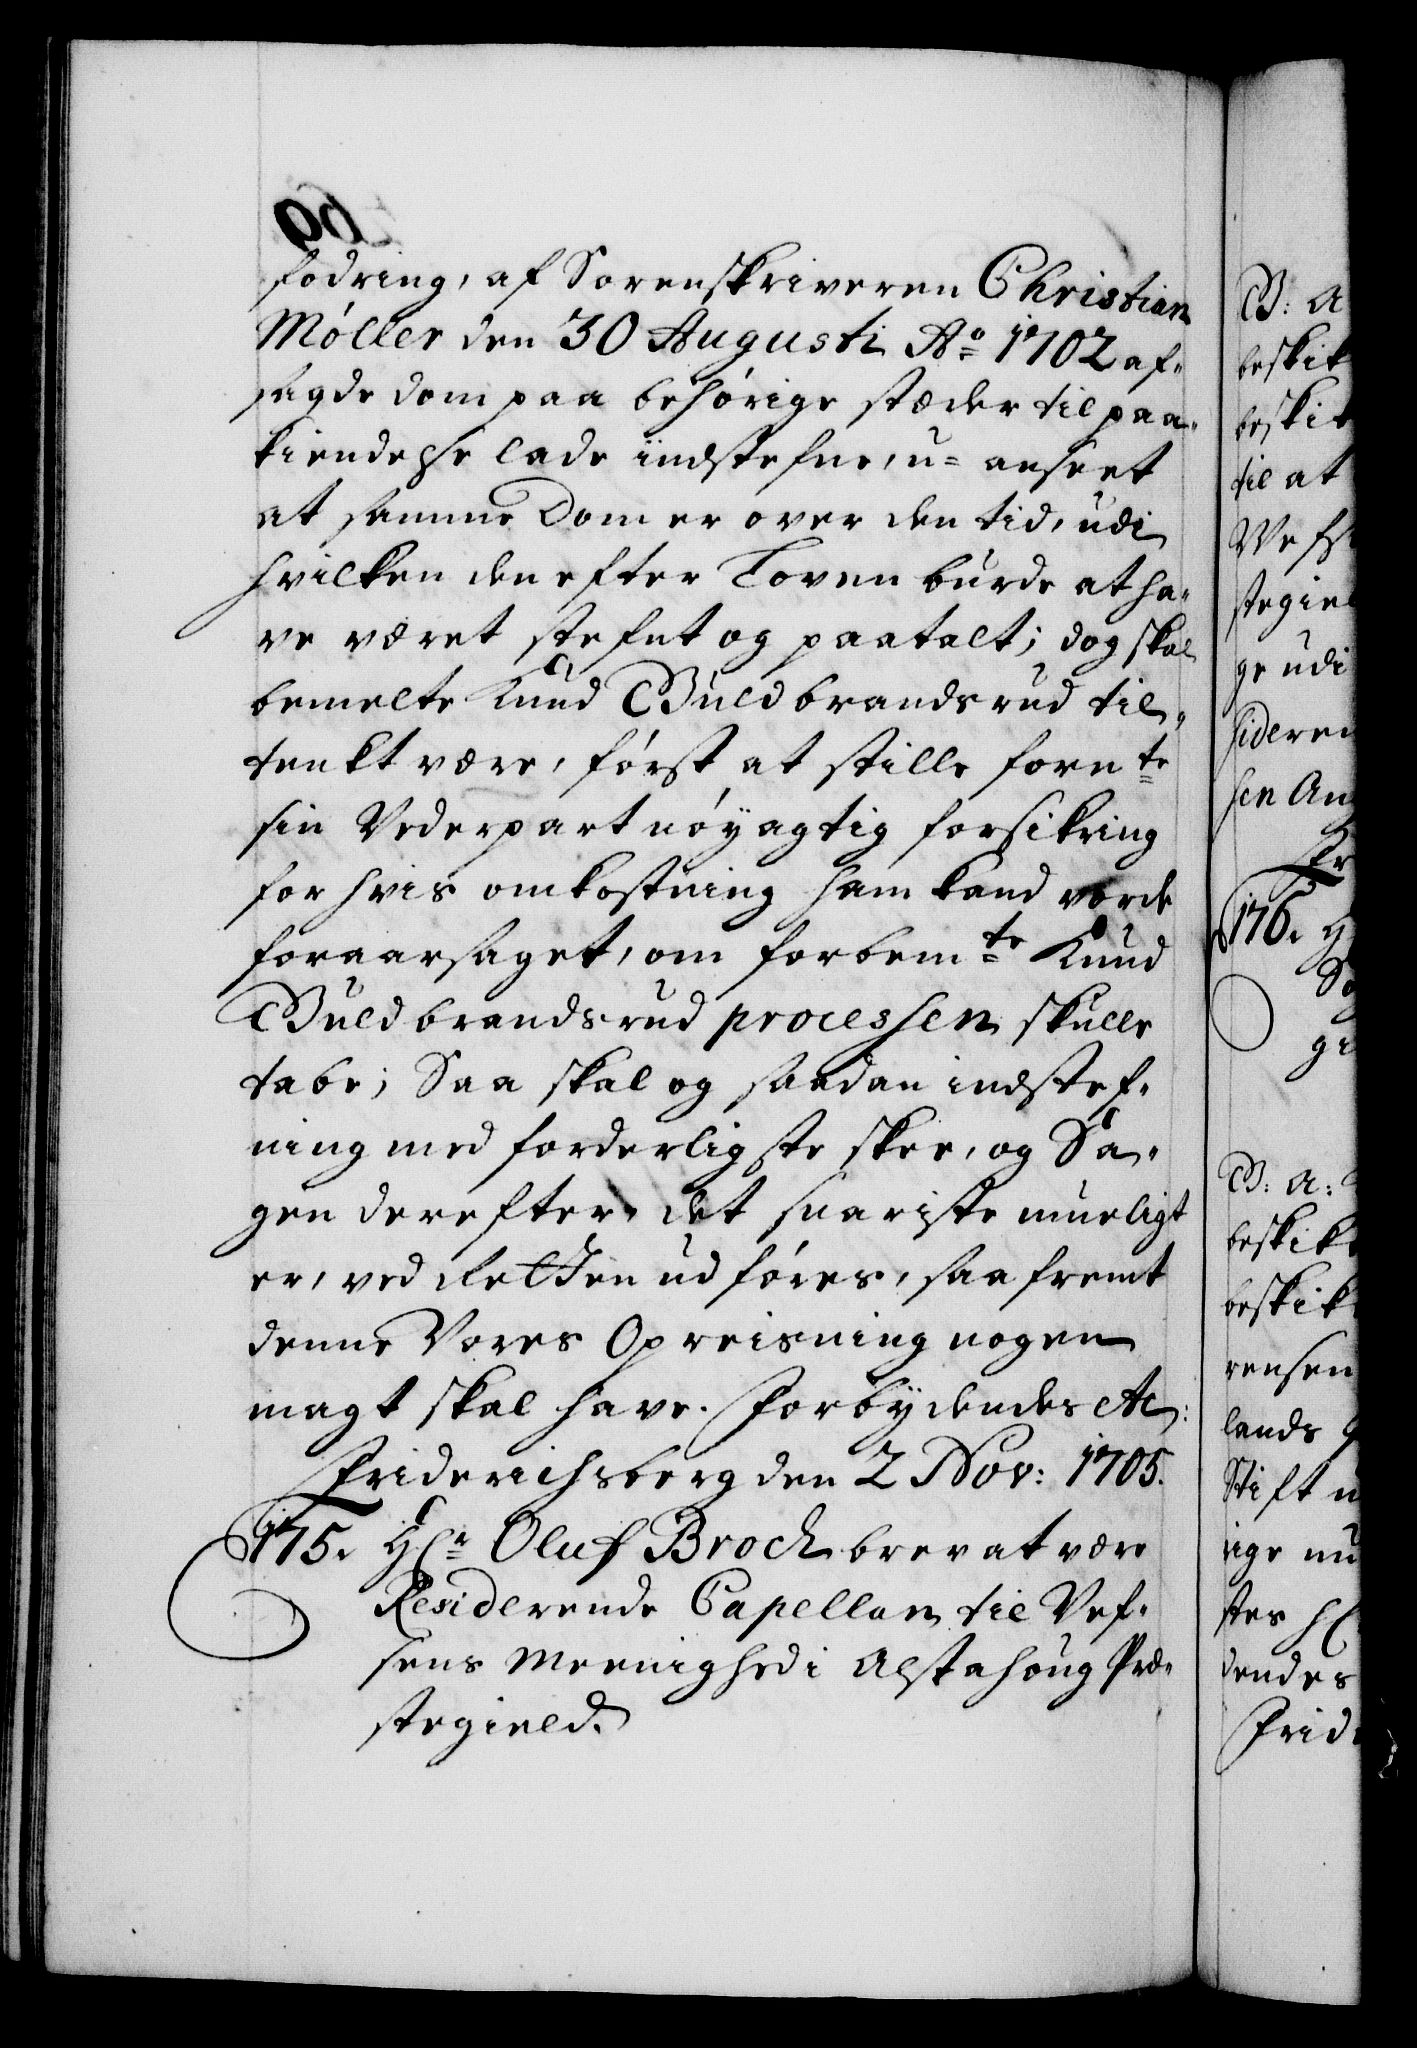 fodring, af Sorenskriveren Christian
Møller den 30 Augusti Aº 1702 af-
sagde dom paa behørige stæder til paa-
kiendelse lade indstefne, u-anseet
at samme Dom er over den tid, udi
hvilken den efter Loven burde at ha-
ve været stefnt og paatalt; dog skal
bemelte Knud Guldbrandsrud til-
tenkt være, først at stille fornte
sin Vederpart nøyagtig forsikring
for hvis omkostning ham kand vorde
foraarsaget, om forbemte Knud
Guldbrandsrud processen skulle
tabe; Saa skal og saadan indstef-
ning med forderligste skee, og Sa-
gen derefter, det snariste mueligt
er, ved Retten udføres, saafremt
denne Vores Opreisning nogen
magt skal have. Forbydendes etc:
Friderichsberg den 2 Nov: 1705.
175. Hr Oluf Broch brev at være
Residerende Capellan til Vef-
sens Meenighed i Alstahoug Præ-
stegield.
G: A
beskik
beskik
til at
Vefs
stegiel
ge udi
sideren
sen An
Fr
176. H
So
gi
G: A:
beskik
beskik
rensen
lands
Stift
rige
stes
dendes
Frid